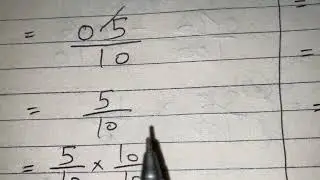 = 0 5 / 10
= 5 / 10
= 5 / 10 × 10 / 10